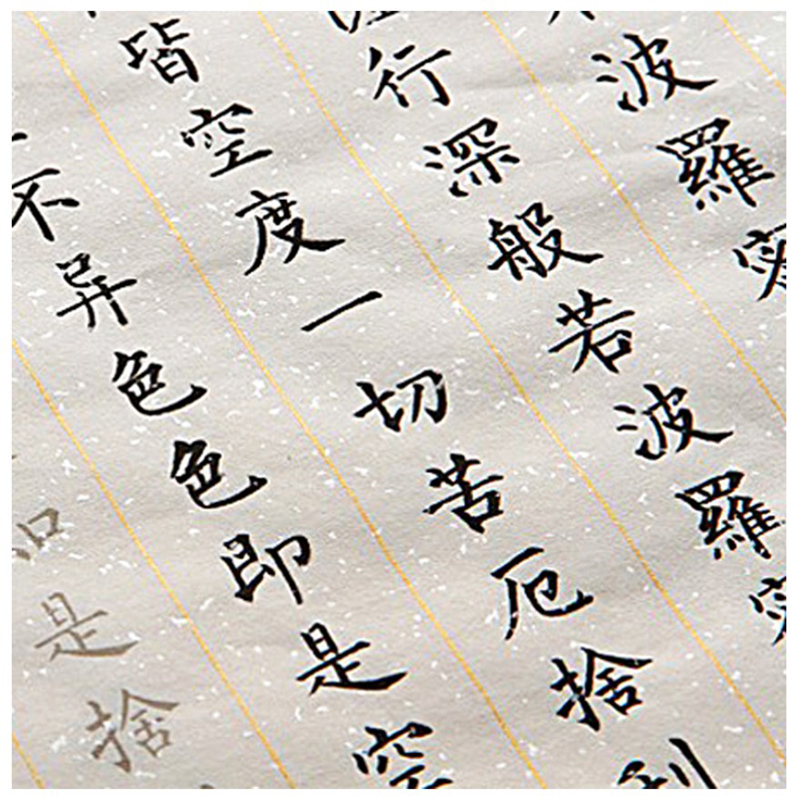 波羅
行深般若波羅
皆空度一切苦厄捨利
不异色色即是空
是捨